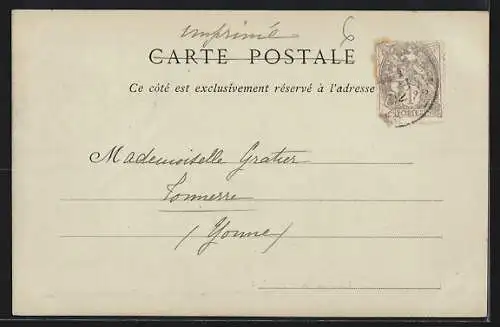 imprimé 6
CARTE POSTALE
Ce côté est exclusivement réservé à l'adresse
Mademoiselle Gratier
Tonnerre
(Yonne)